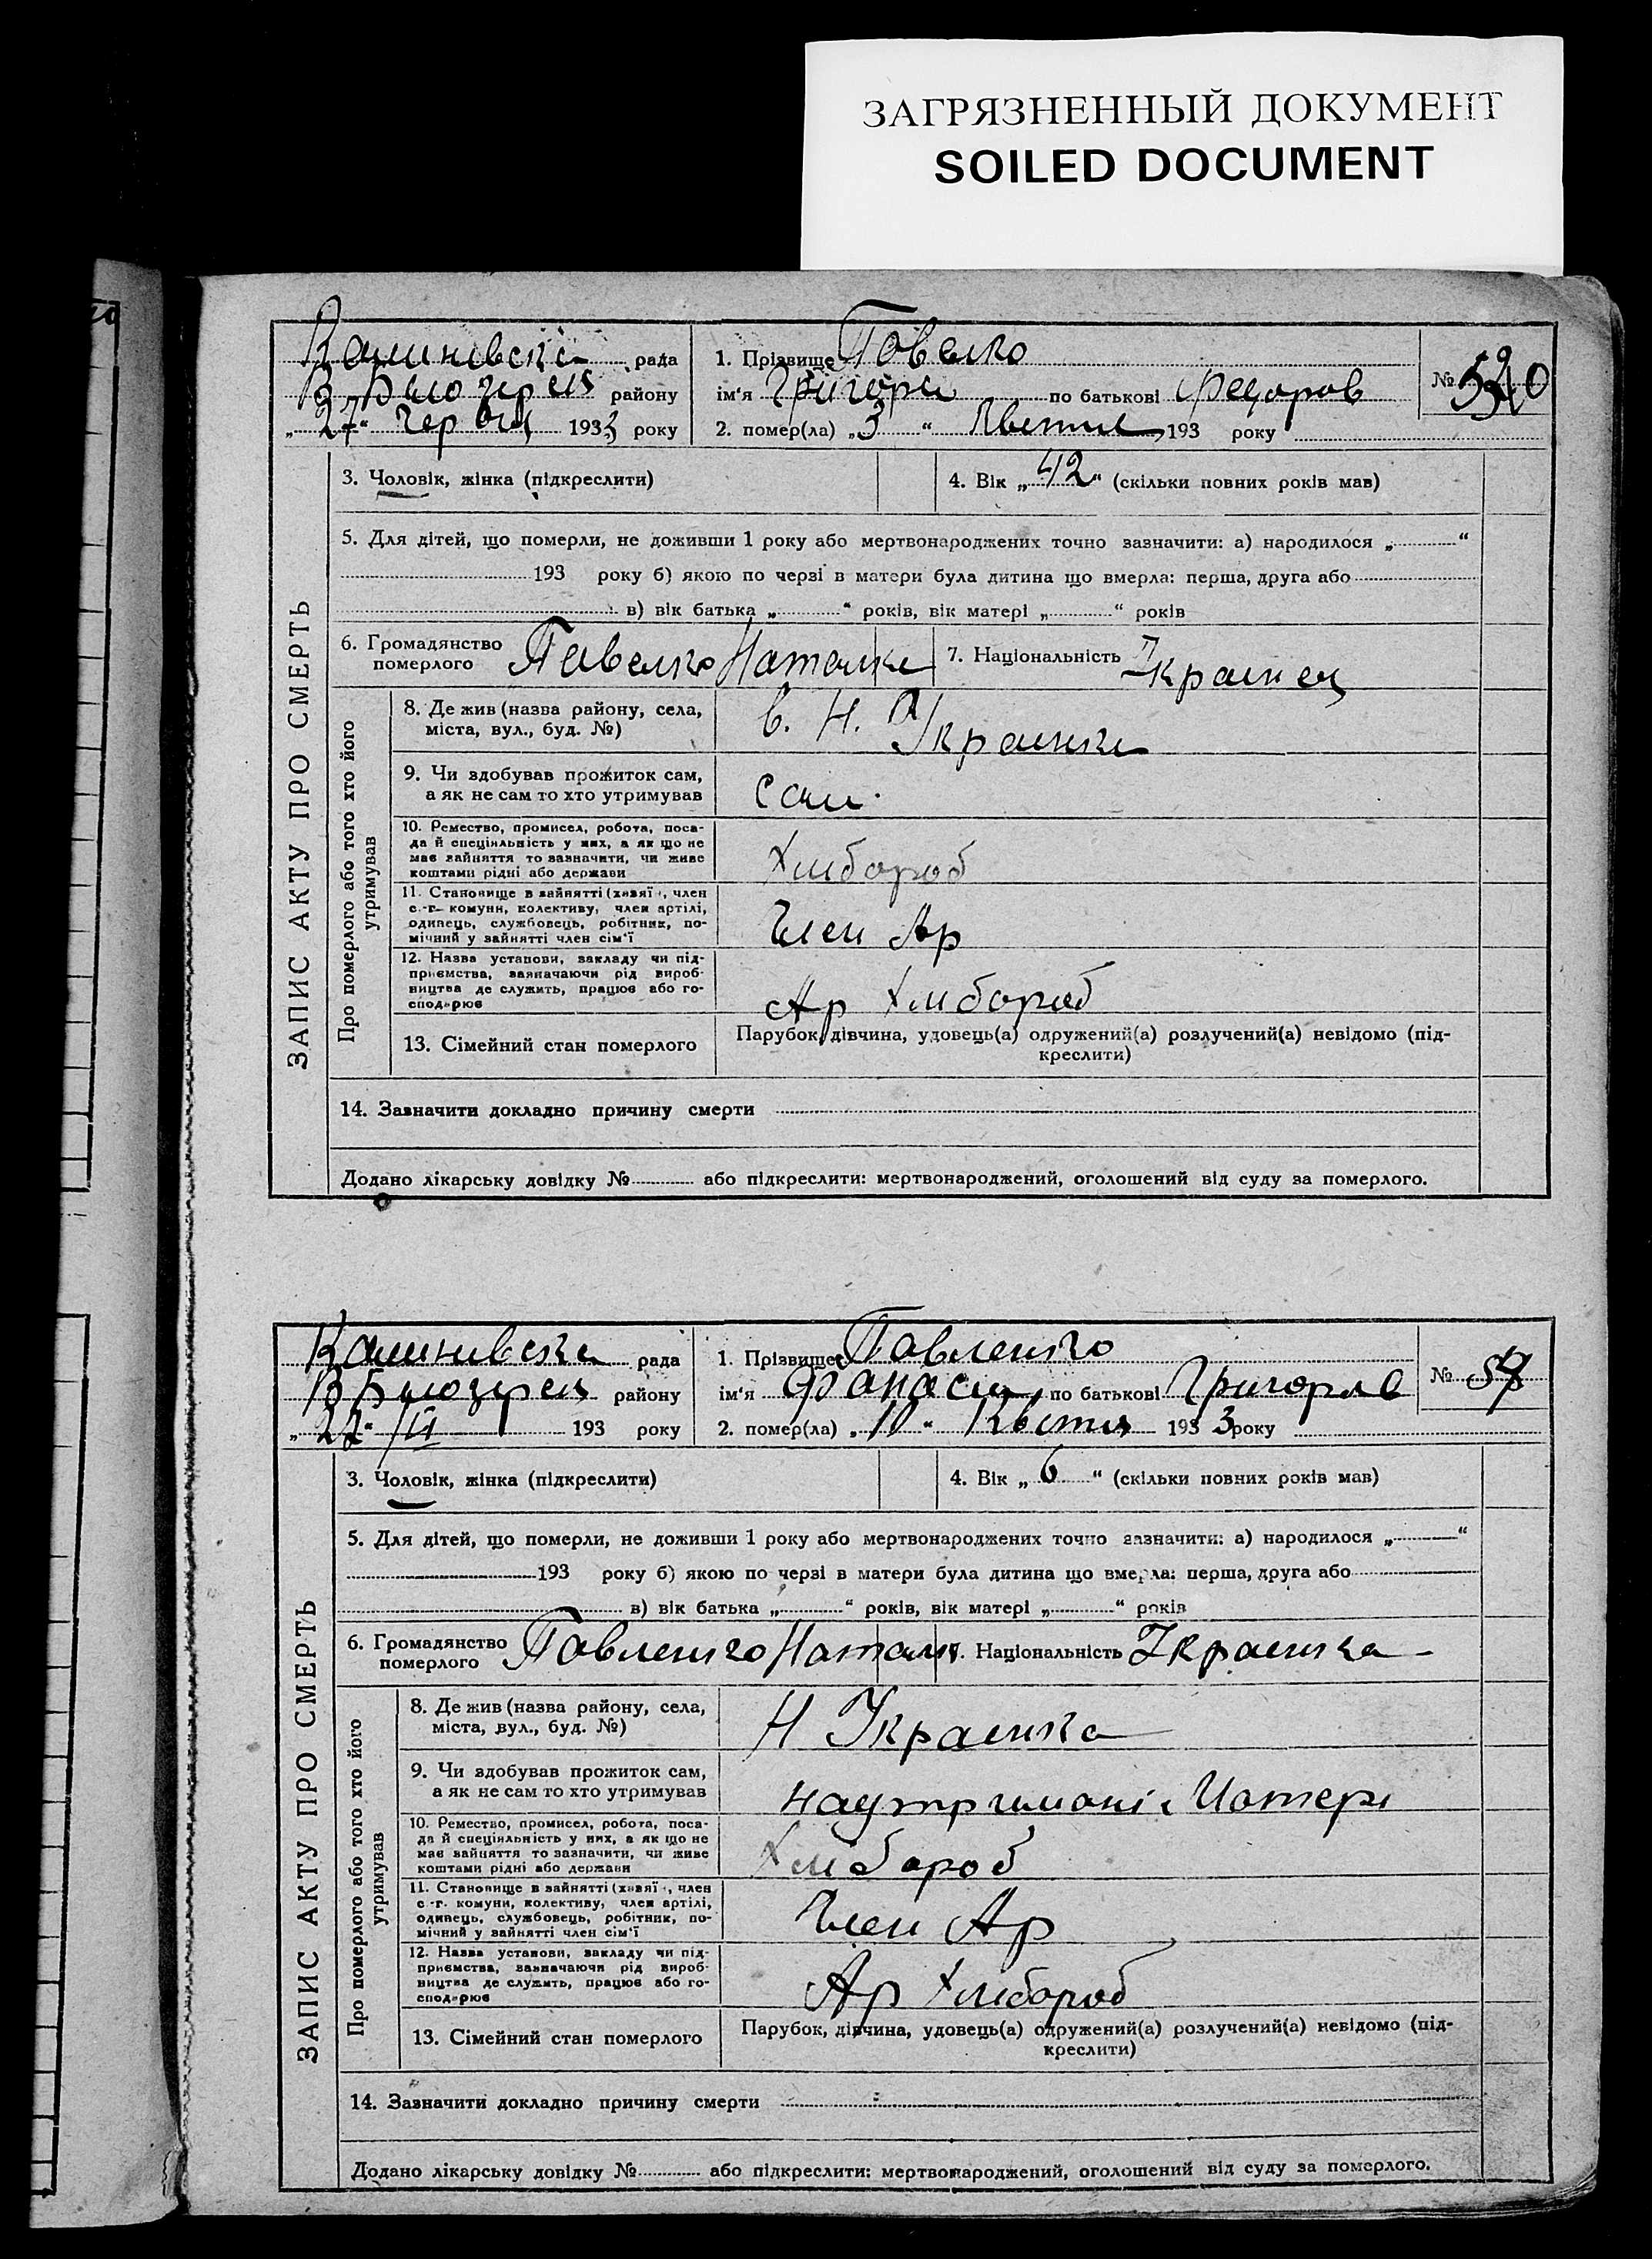 ЗАГРЯЗНЕННЫЙ ДОКУМЕНТ
SOILED DOCUMENT
рада
району
„27“ 1933 року
1. Прізвище
ім'я Григорій по батькові Федоров
2. помер(ла) „3“ Квітня 193 року
№
ЗАПИС АКТУ ПРО СМЕРТЬ
3. Чоловік, жінка (підкреслити)
4. Вік „42“ (скільки повних років мав)
5. Для дітей, що померли, не доживши 1 року або мертвонароджених точно зазначити: а) народилося „ “
193 року б) якою по черзі в матери була дитина що вмерла: перша, друга або
в) вік батька „ “ років, вік матері „ “ років
6. Громадянство
померлого
7. Національність Українец
Про померлого або того хто його
утримував
8. Де жив (назва району, села,
міста, вул., буд. №)
в. Н. Українки
9. Чи здобував прожиток сам,
а як не сам то хто утримував
Сам.
10. Ремество, промисел, робота, поса-
да й спеціяльність у них, а як що не
має зайняття то зазначити, чи живе
коштами рідні або держави
Хлібороб
11. Становище в зайнятті (хазяї, член
с.-г. комуни, колективу, член артілі,
одинець, службовець, робітник, по-
мічний у зайнятті член сім'ї
Член Ар
12. Назва установи, закладу чи під-
приємства, зазначаючи рід вироб-
ництва де служить, працює або го-
сподарює
Ар Хлібороб
13. Сімейний стан померлого
Парубок, дівчина, удовець(а) одружений(а) розлучений(а) невідомо (під-
креслити)
14. Зазначити докладно причину смерти
Додано лікарську довідку № або підкреслити: мертвонароджений, оголошений від суду за померлого.
рада
району
193 року
1. Прізвище Павленко
ім'я по батькові Григорів
2. помер(ла) „10“ Квітня 1933 року
№
ЗАПИС АКТУ ПРО СМЕРТЬ
3. Чоловік, жінка (підкреслити)
4. Вік „6“ (скільки повних років мав)
5. Для дітей, що померли, не доживши 1 року або мертвонароджених точно зазначити: а) народилося „ “
193 року б) якою по черзі в матери була дитина що вмерла: перша, друга або
в) вік батька „ “ років, вік матері „ “ років
6. Громадянство
померлого
Павленко
7. Національність Українка
Про померлого або того хто його
утримував
8. Де жив (назва району, села,
міста, вул., буд. №)
Н Українка
9. Чи здобував прожиток сам,
а як не сам то хто утримував
на утримані Матери
10. Ремество, промисел, робота, поса-
да й спеціяльність у них, а як що не
має зайняття то зазначити, чи живе
коштами рідні або держави
Хлібороб
11. Становище в зайнятті (хазяї, член
с.-г. комуни, колективу, член артілі,
одинець, службовець, робітник, по-
мічний у зайнятті член сім'ї
Член Ар
12. Назва установи, закладу чи під-
приємства, зазначаючи рід вироб-
ництва де служить, працює або го-
сподарює
Ар Хлібороб
13. Сімейний стан померлого
Парубок, дівчина, удовець(а) одружений(а) розлучений(а) невідомо (під-
креслити)
14. Зазначити докладно причину смерти
Додано лікарську довідку № або підкреслити: мертвонароджений, оголошений від суду за померлого.